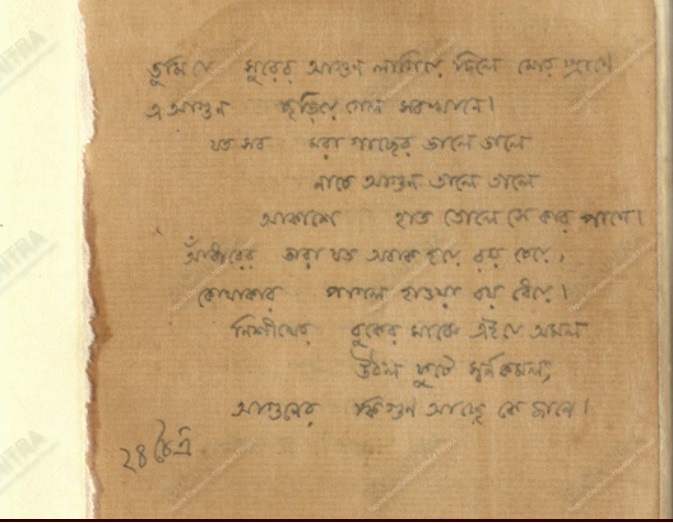 তুমি যে সুরের আগুন লাগিয়ে দিলে মোর প্রাণে
এ আগুন ছড়িয়ে গেল সবখানে।
যত সব মরা গাছের ডালে ডালে
নাচে আগুন তালে তালে
আকাশে হাত তোলে সে কার পানে।
আঁধারের তারা যত অবাক হয়ে রয় চেয়ে,
কোথাকার পাগল হাওয়া বয় ধেয়ে।
নিশীথের বুকের মাঝে এই যে অমল
উঠল ফুটে স্বর্ণকমল,
আগুনের কি গুণ আছে কে জানে।
২৪ চৈত্র